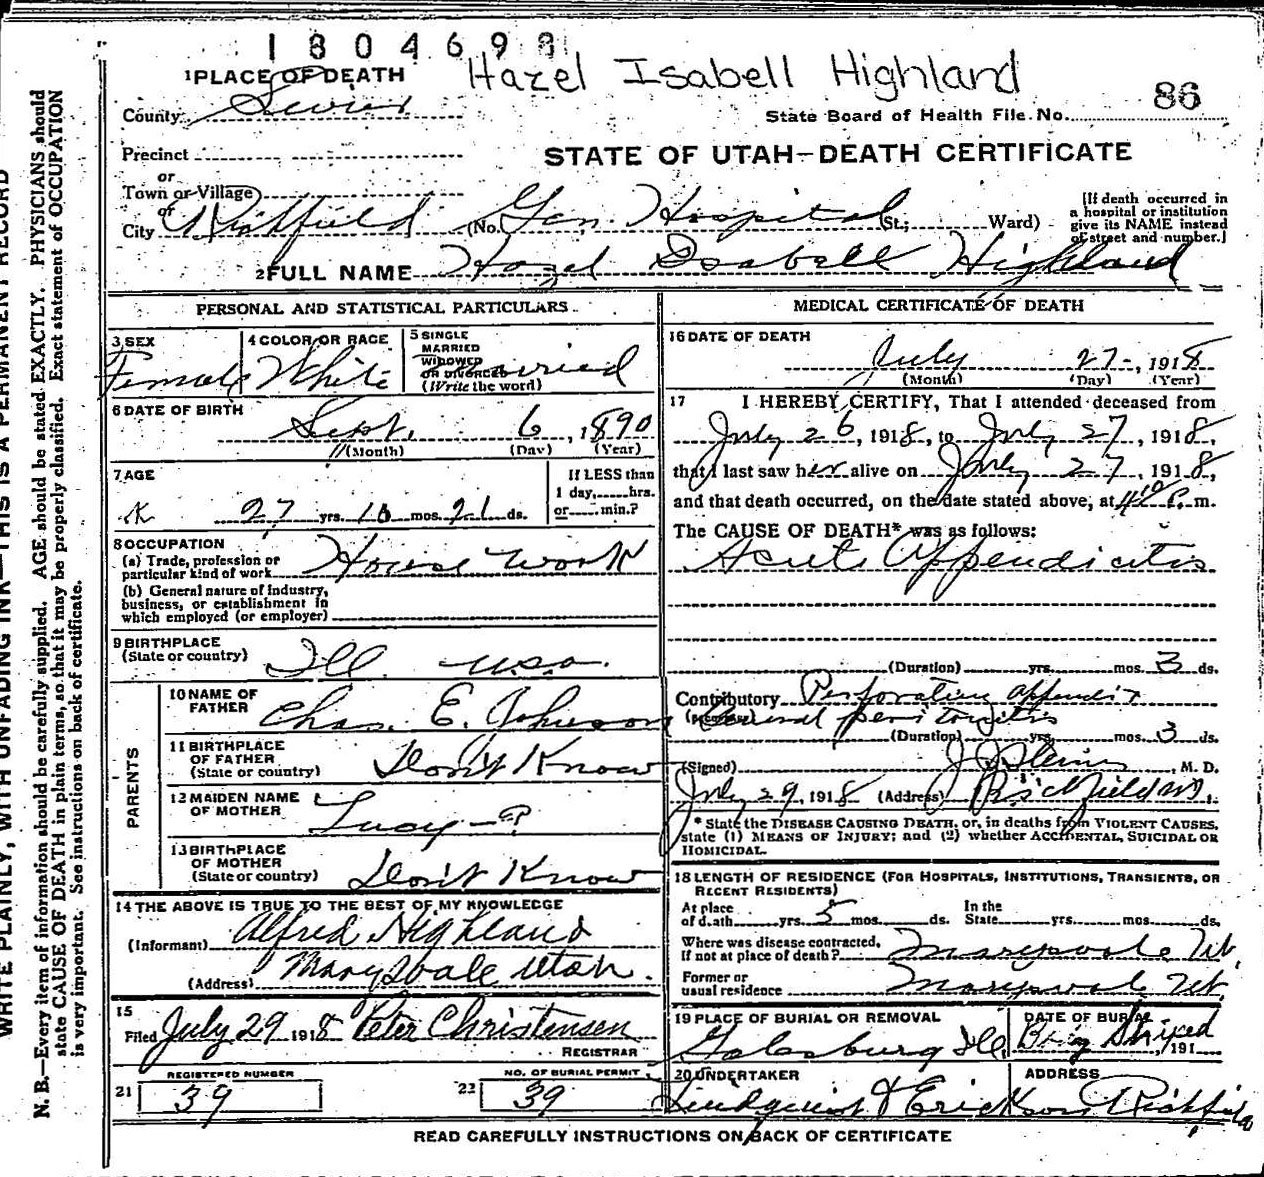 1804698
Hazel Isabell Highland
1 PLACE OF DEATH
County Sevier
86
State Board of Health File No.
Precinct
STATE OF UTAH—DEATH CERTIFICATE
or
Town or Village
or
City Richfield (No. Gen. Hospital St.; Ward)
[If death occurred in
a hospital or institution
give its NAME instead
of street and number.]
2 FULL NAME Hazel Isabell Highland
PERSONAL AND STATISTICAL PARTICULARS
3 SEX
Female
4 COLOR OR RACE
White
5 SINGLE
MARRIED
WIDOWED
OR DIVORCED
(Write the word)
Married
6 DATE OF BIRTH
Sept. 6, 1890
(Month) (Day) (Year)
7 AGE
27 yrs. 10 mos. 21 ds.
If LESS than
1 day,......hrs.
or......min.?
8 OCCUPATION
(a) Trade, profession or
particular kind of work House work
(b) General nature of industry,
business, or establishment in
which employed (or employer)
9 BIRTHPLACE
(State or country) Ill. U.S.A.
PARENTS
10 NAME OF
FATHER Chas. E. Johnson
11 BIRTHPLACE
OF FATHER
(State or country) Don't Know
12 MAIDEN NAME
OF MOTHER Lucy —?
13 BIRTHPLACE
OF MOTHER
(State or country) Don't Know
14 THE ABOVE IS TRUE TO THE BEST OF MY KNOWLEDGE
(Informant) Alfred Highland
(Address) Marysvale Utah.
15
Filed July 29 1918 Peter Christensen
REGISTRAR
REGISTERED NUMBER
21 39
NO. OF BURIAL PERMIT
22 39
MEDICAL CERTIFICATE OF DEATH
16 DATE OF DEATH
July 27, 1918
(Month) (Day) (Year)
17 I HEREBY CERTIFY, That I attended deceased from
July 26, 1918, to July 27, 1918,
that I last saw her alive on July 27, 1918,
and that death occurred, on the date stated above, at P. m.
The CAUSE OF DEATH* was as follows:
Acute Appendicitis
(Duration) yrs. mos. 3 ds.
Contributory Perforating appendix
General peritonitis
(Duration) yrs. mos. 3 ds.
(Signed) M. D.
July 29, 1918 (Address) Richfield Ut.
* State the DISEASE CAUSING DEATH, or, in deaths from VIOLENT CAUSES,
state (1) MEANS OF INJURY; and (2) whether ACCIDENTAL, SUICIDAL OR
HOMICIDAL.
18 LENGTH OF RESIDENCE (FOR HOSPITALS, INSTITUTIONS, TRANSIENTS, OR
RECENT RESIDENTS)
At place
of death yrs. 5 mos. ds.
In the
State yrs. mos. ds.
Where was disease contracted,
if not at place of death? Marysvale Ut.
Former or
usual residence Marysvale Ut.
19 PLACE OF BURIAL OR REMOVAL
Galesburg Ill.
DATE OF BURIAL
Being Shiped
, 191
20 UNDERTAKER
Lindquist & Erickson
ADDRESS
Richfield
READ CAREFULLY INSTRUCTIONS ON BACK OF CERTIFICATE
WRITE PLAINLY, WITH UNFADING INK—THIS IS A PERMANENT RECORD
N. B.—Every item of information should be carefully supplied. AGE should be stated EXACTLY. PHYSICIANS should
state CAUSE OF DEATH in plain terms, so that it may be properly classified. Exact statement of OCCUPATION
is very important. See instructions on back of certificate.